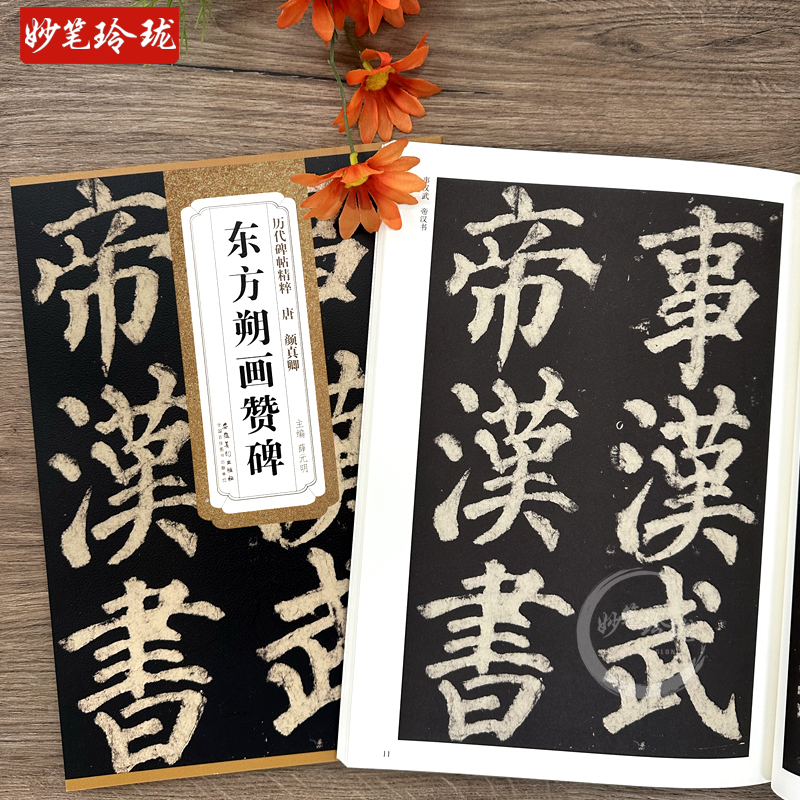 妙笔玲珑
历代碑帖精粹 唐 颜真卿
东方朔画赞碑
主编 薛元明
安徽美术出版社
帝漢書
武
事漢武 帝汉书
事漢武
帝漢書
妙笔玲珑
11